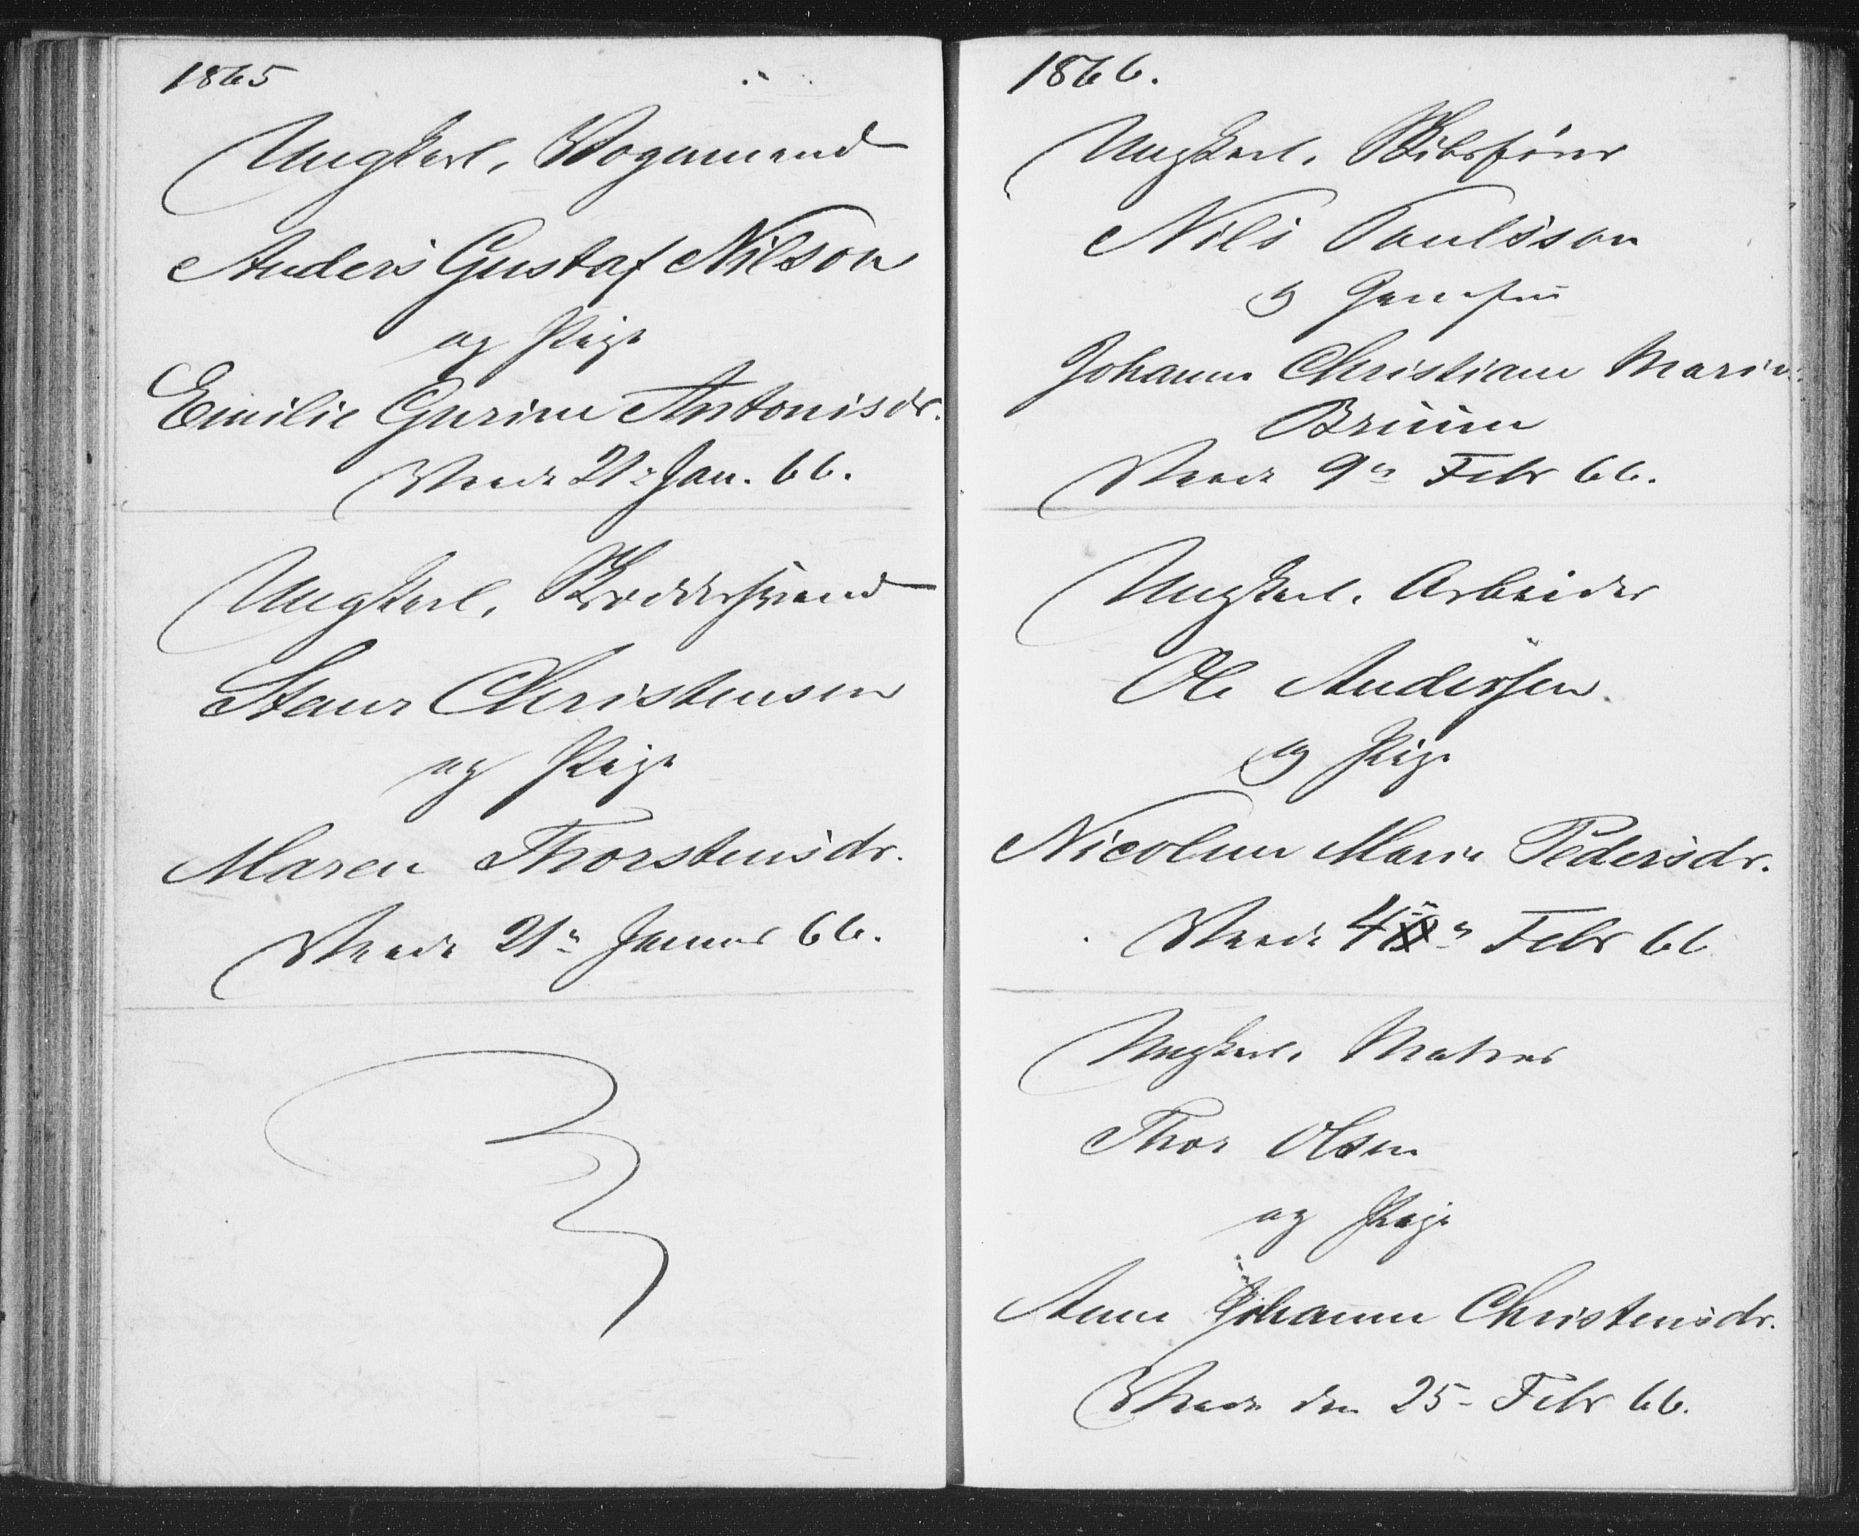 1865
Ungkarl, Vognmand
Anders Gustaf Nilson
og Pige
Emilie Gurine Antonisdr.
Viede 21de Jan. 66.
Ungkarl,
Hans Christensen
og Pige
Maren Thorstensdr.
Viede 21de Januar 66.
1866.
Ungkarl, Skibsfører
Nils Paulsson
og Jomfru
Johanne Christiane Marie
Bruun
Viede 9de Febr 66.
Ungkarl. Arbeider
Ole Anderssen
og Pige
Nicoline Marie Pedersdr.
Viede 4 de Febr 66
Ungkarl, Matros
Thor Olsen
og Pige
Anne Johanne Christensdr.
Viede den 25 Febr 66.